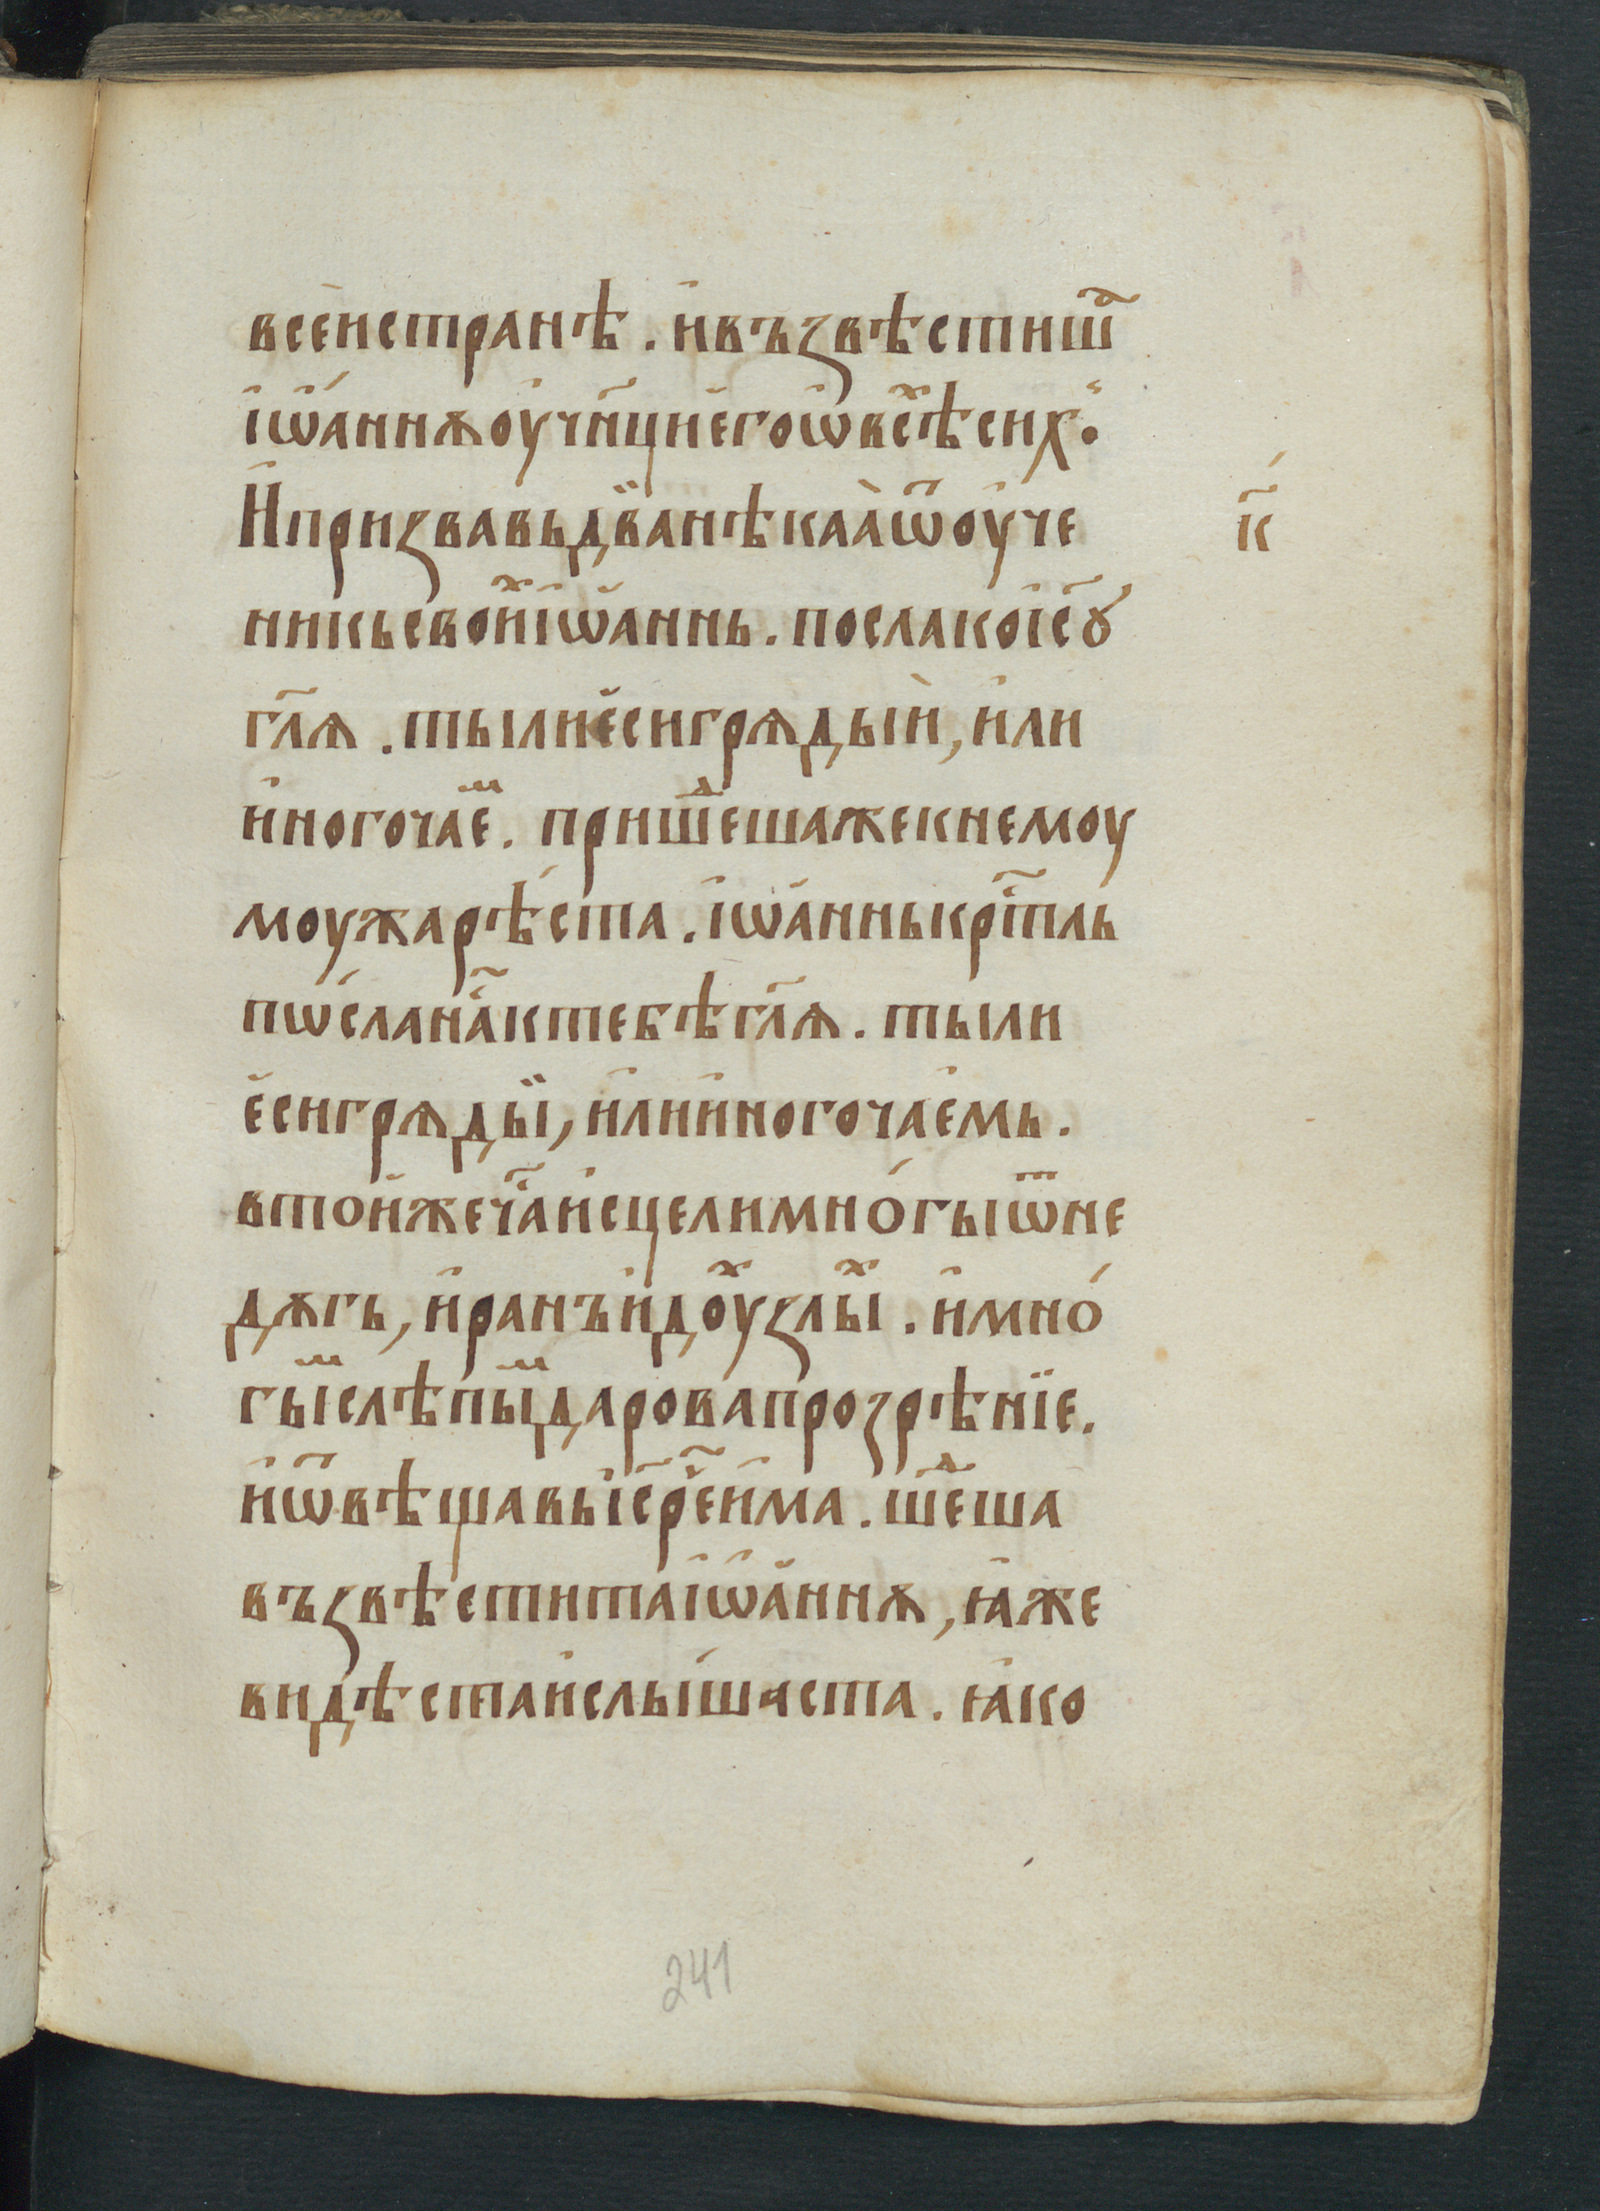 всеи҆странѣ . и҆въꙁвѣстиш҃а
і҆ѡ҆́аннѫоу҆чн҃циє҆гоѡ҆всⷯѣсихⸯ ⁘
И҆приꙁвавьдванѣкаа̀ѿоу҆че
к҃
никьсвоиⷯі҆ѡ҆аннь . послакоі҆с҃ꙋ
гл҃ѧ . тылиє҆сигрѧдыи҆ , и҆ли
и҆ногочаеⷨ . пришеⷣшажекнемоу
моужарѣ́ста . і҆ѡ҆а҆ннькрⷭ҇тль
пѡ́сланаⷭ҇ктебѣгл҃ѧ . тыли
є҆сигрѧдыї , и҆лии҆ногочаємь .
втои҆жечаⷭ҇и҆сцелимно́гыѿне
дѫгь , и҆ранъи҆дꙋⷯꙁлыⷯ . и҆мно́
гыⷨслѣпыⷨдаровапрозрѣнїе .
и҆ѿвѣщавьі҆с҃рⷱ҇еи҆ма . шеⷣша
въꙁвѣститаі҆ѡ҆а҆ннѫ , ꙗ҆же
видѣстаи҆слы́шаста . ꙗ҆ко
241